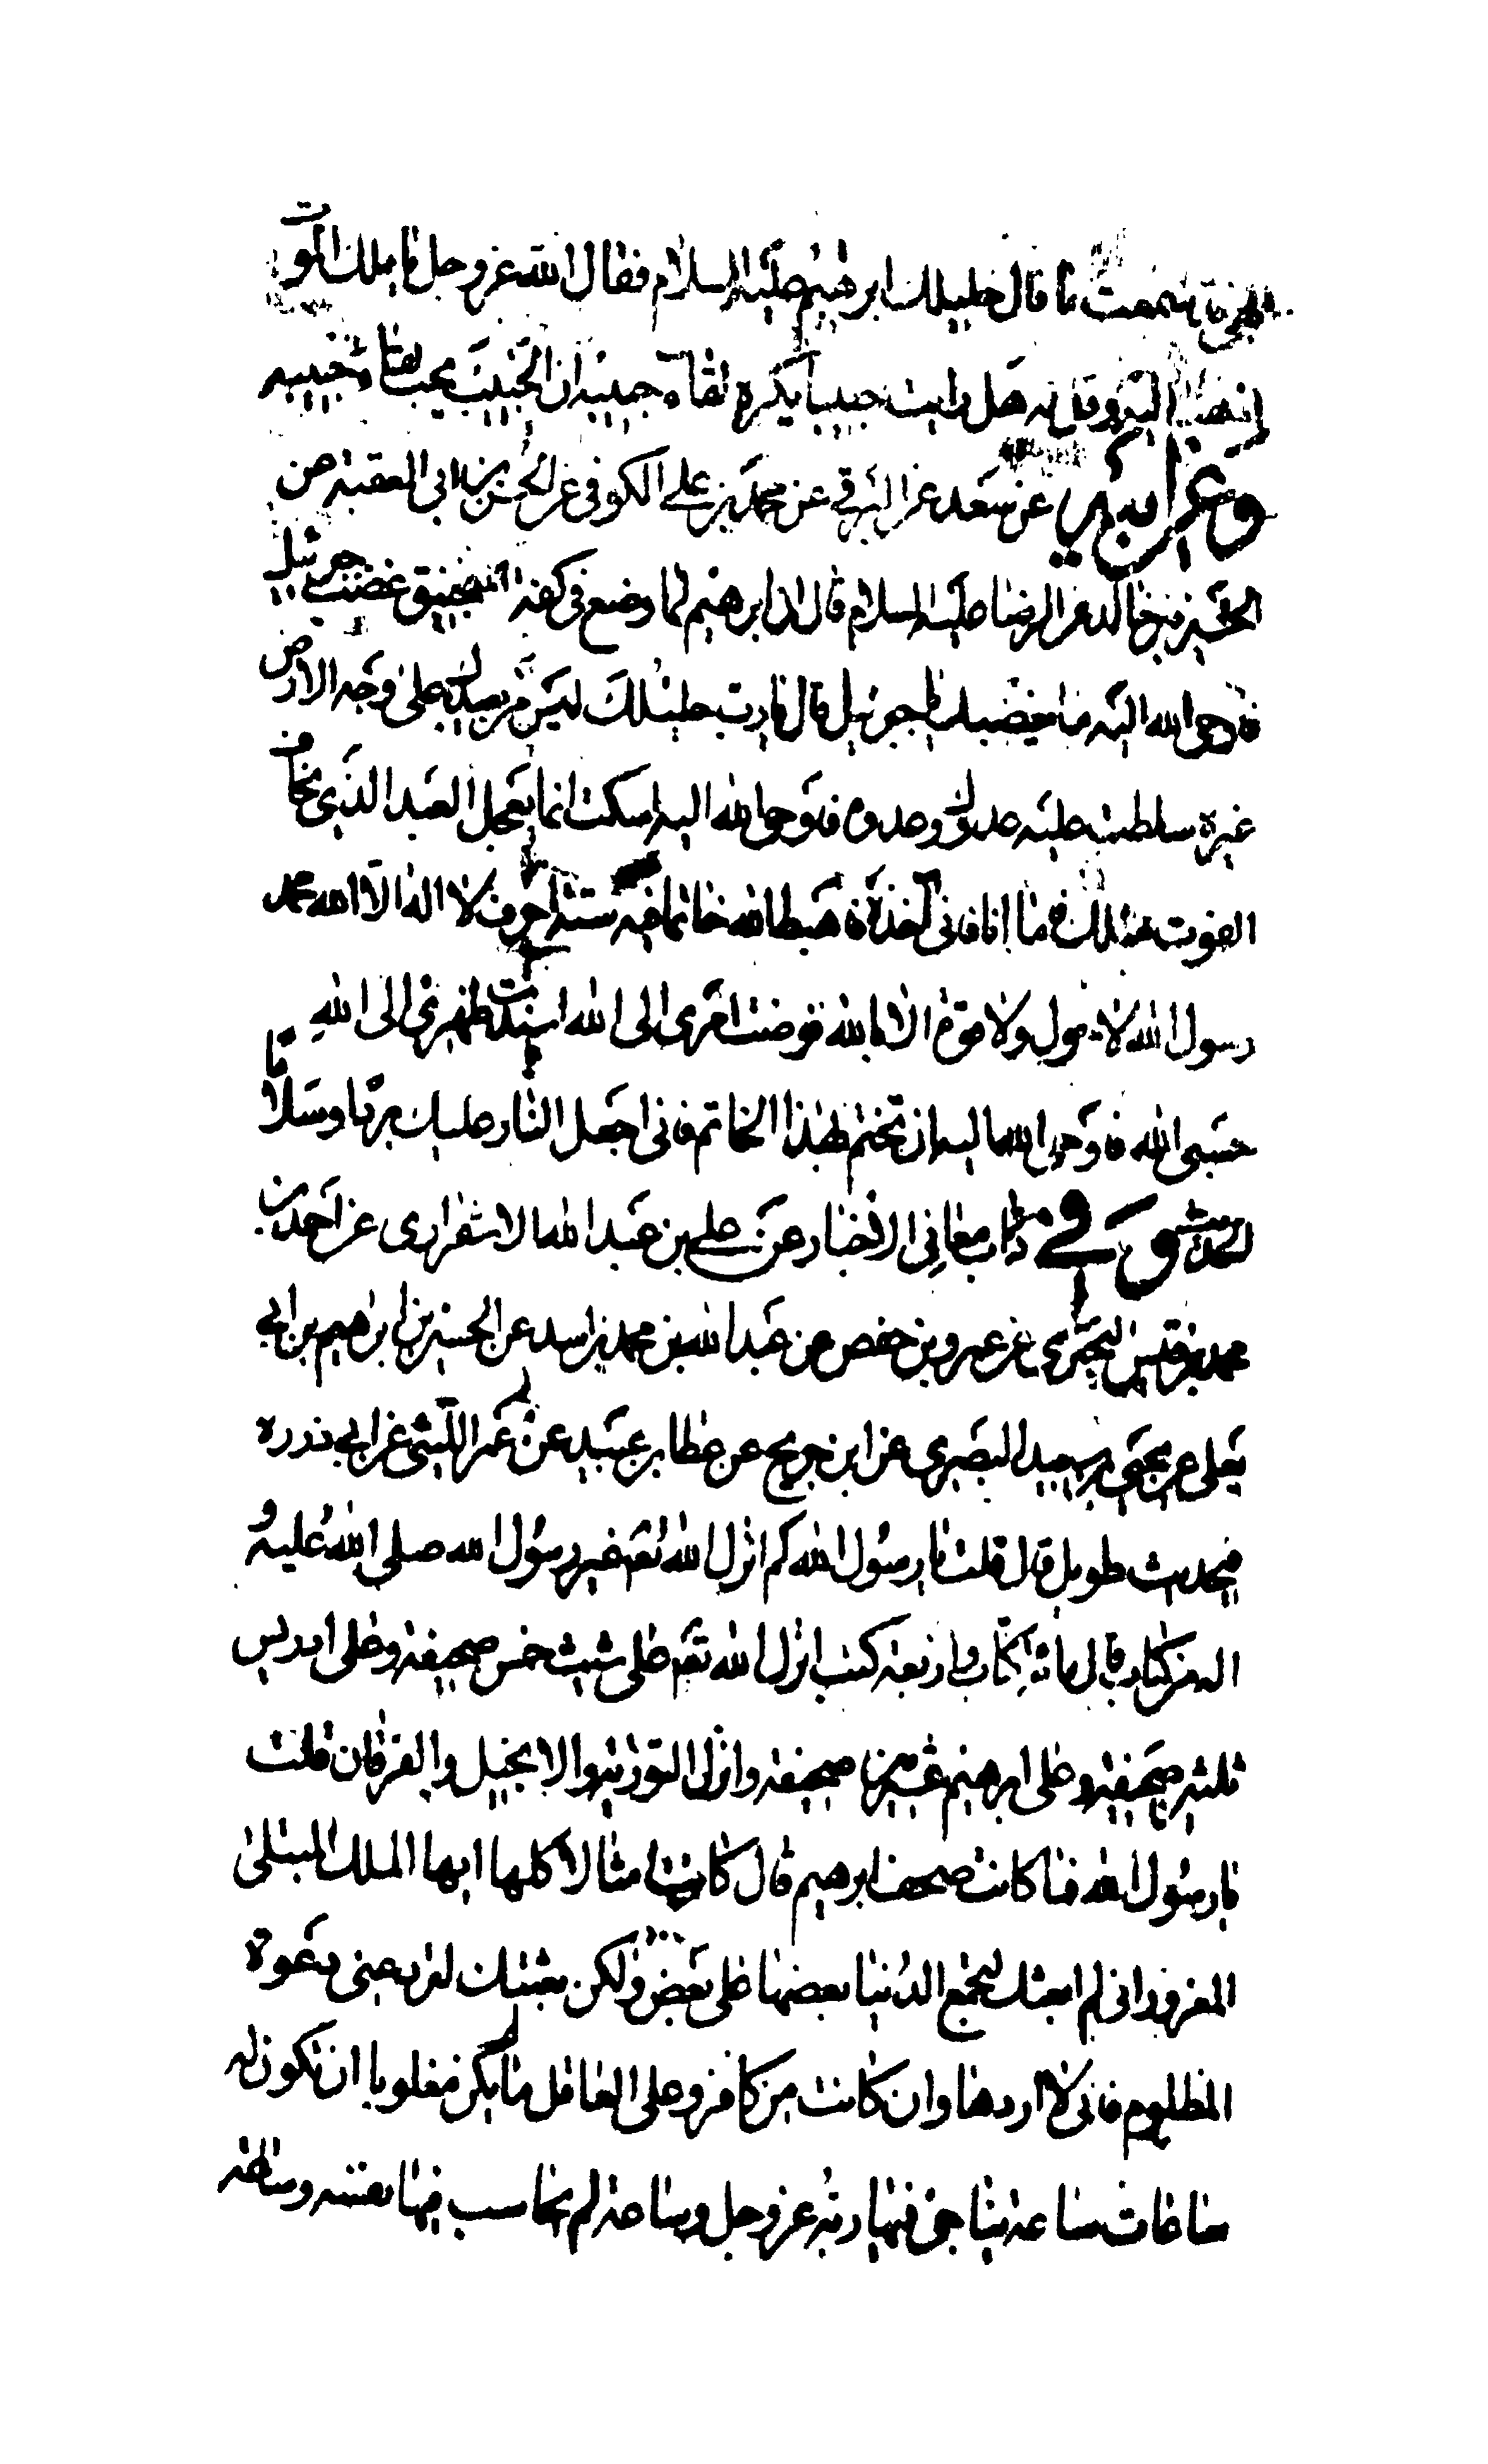 الهي قد سمعت ما قال خليلك ابرهيم عليه السلام فقال الله عز وجل يا ملك الموت
اذهب اليه وقل له هل رايت حبيبا يكره لقاء حبيبه ان الحبيب يحب لقاء حبيبه
وعن ابيه عن سعد عن البرقي عن محمد بن علي الكوفي عن الحسن بن ابي العقبه عن
الحسين بن خالد عن الرضا عليه السلام قال ان ابرهيم لما وضع في كفة المنجنيق غضب جبرئيل
فاوحى الله اليه ما يغضبك يا جبرئيل قال يا رب خليلك ليس من يعبدك على وجه الارض
غيره سلطت عليه عدوك وعدوه فاوحى الله اليه اسكت انما يعجل العبد الذي يخاف
الفوت مثلك فاما انا فاني آخذه فاهبط الله خاتما فيه ستة احرف لا اله الا الله محمد
رسول الله لا حول ولا قوة الا بالله فوضت امري الى الله اسندت ظهري الى الله
حسبي الله فاوحى الله اليه ان تختم بهذا الخاتم فاني اجعل النار عليك بردا وسلاما
الصدوق في كتاب معاني الاخبار عن علي بن عبد الله الاسفراري عن احمد بن
محمد بن قيس السجزي عن عمرو بن حفص عن عبد الله بن محمد بن اسد عن الحسين بن ابرهيم بن ابي
يعلى عن يحيى بن سعيد البصري عن ابن جريح عن عطا بن عبيد عن عمر الليثي عن ابي ذر ره
في حديث طويل قال قلت يا رسول الله كم انزل الله تعم غير رسول الله صلى الله عليه و
اله من كتاب قال مائة كتاب واربعة كتب انزل الله تعم على شيث خمس صحيفة وعلى ادريس
ثلثين صحيفة وعلى ابرهيم عشرين صحيفة وانزل التورية والانجيل والفرقان قلت
يا رسول الله فما كانت صحف ابرهيم قال كانت امثالا كلها ايها الملك المبتلى
المغرور اني لم ابعثك لتجمع الدنيا بعضها على بعض ولكن بعثتك لترد عني دعوة
المظلوم فاني لا اردها وان كانت من كافر وعلى العاقل ما لم يكن مغلوبا ان تكون له
ساعات ساعة يناجي فيها ربه عز وجل وساعة لم يحاسب فيها نفسه وساعة